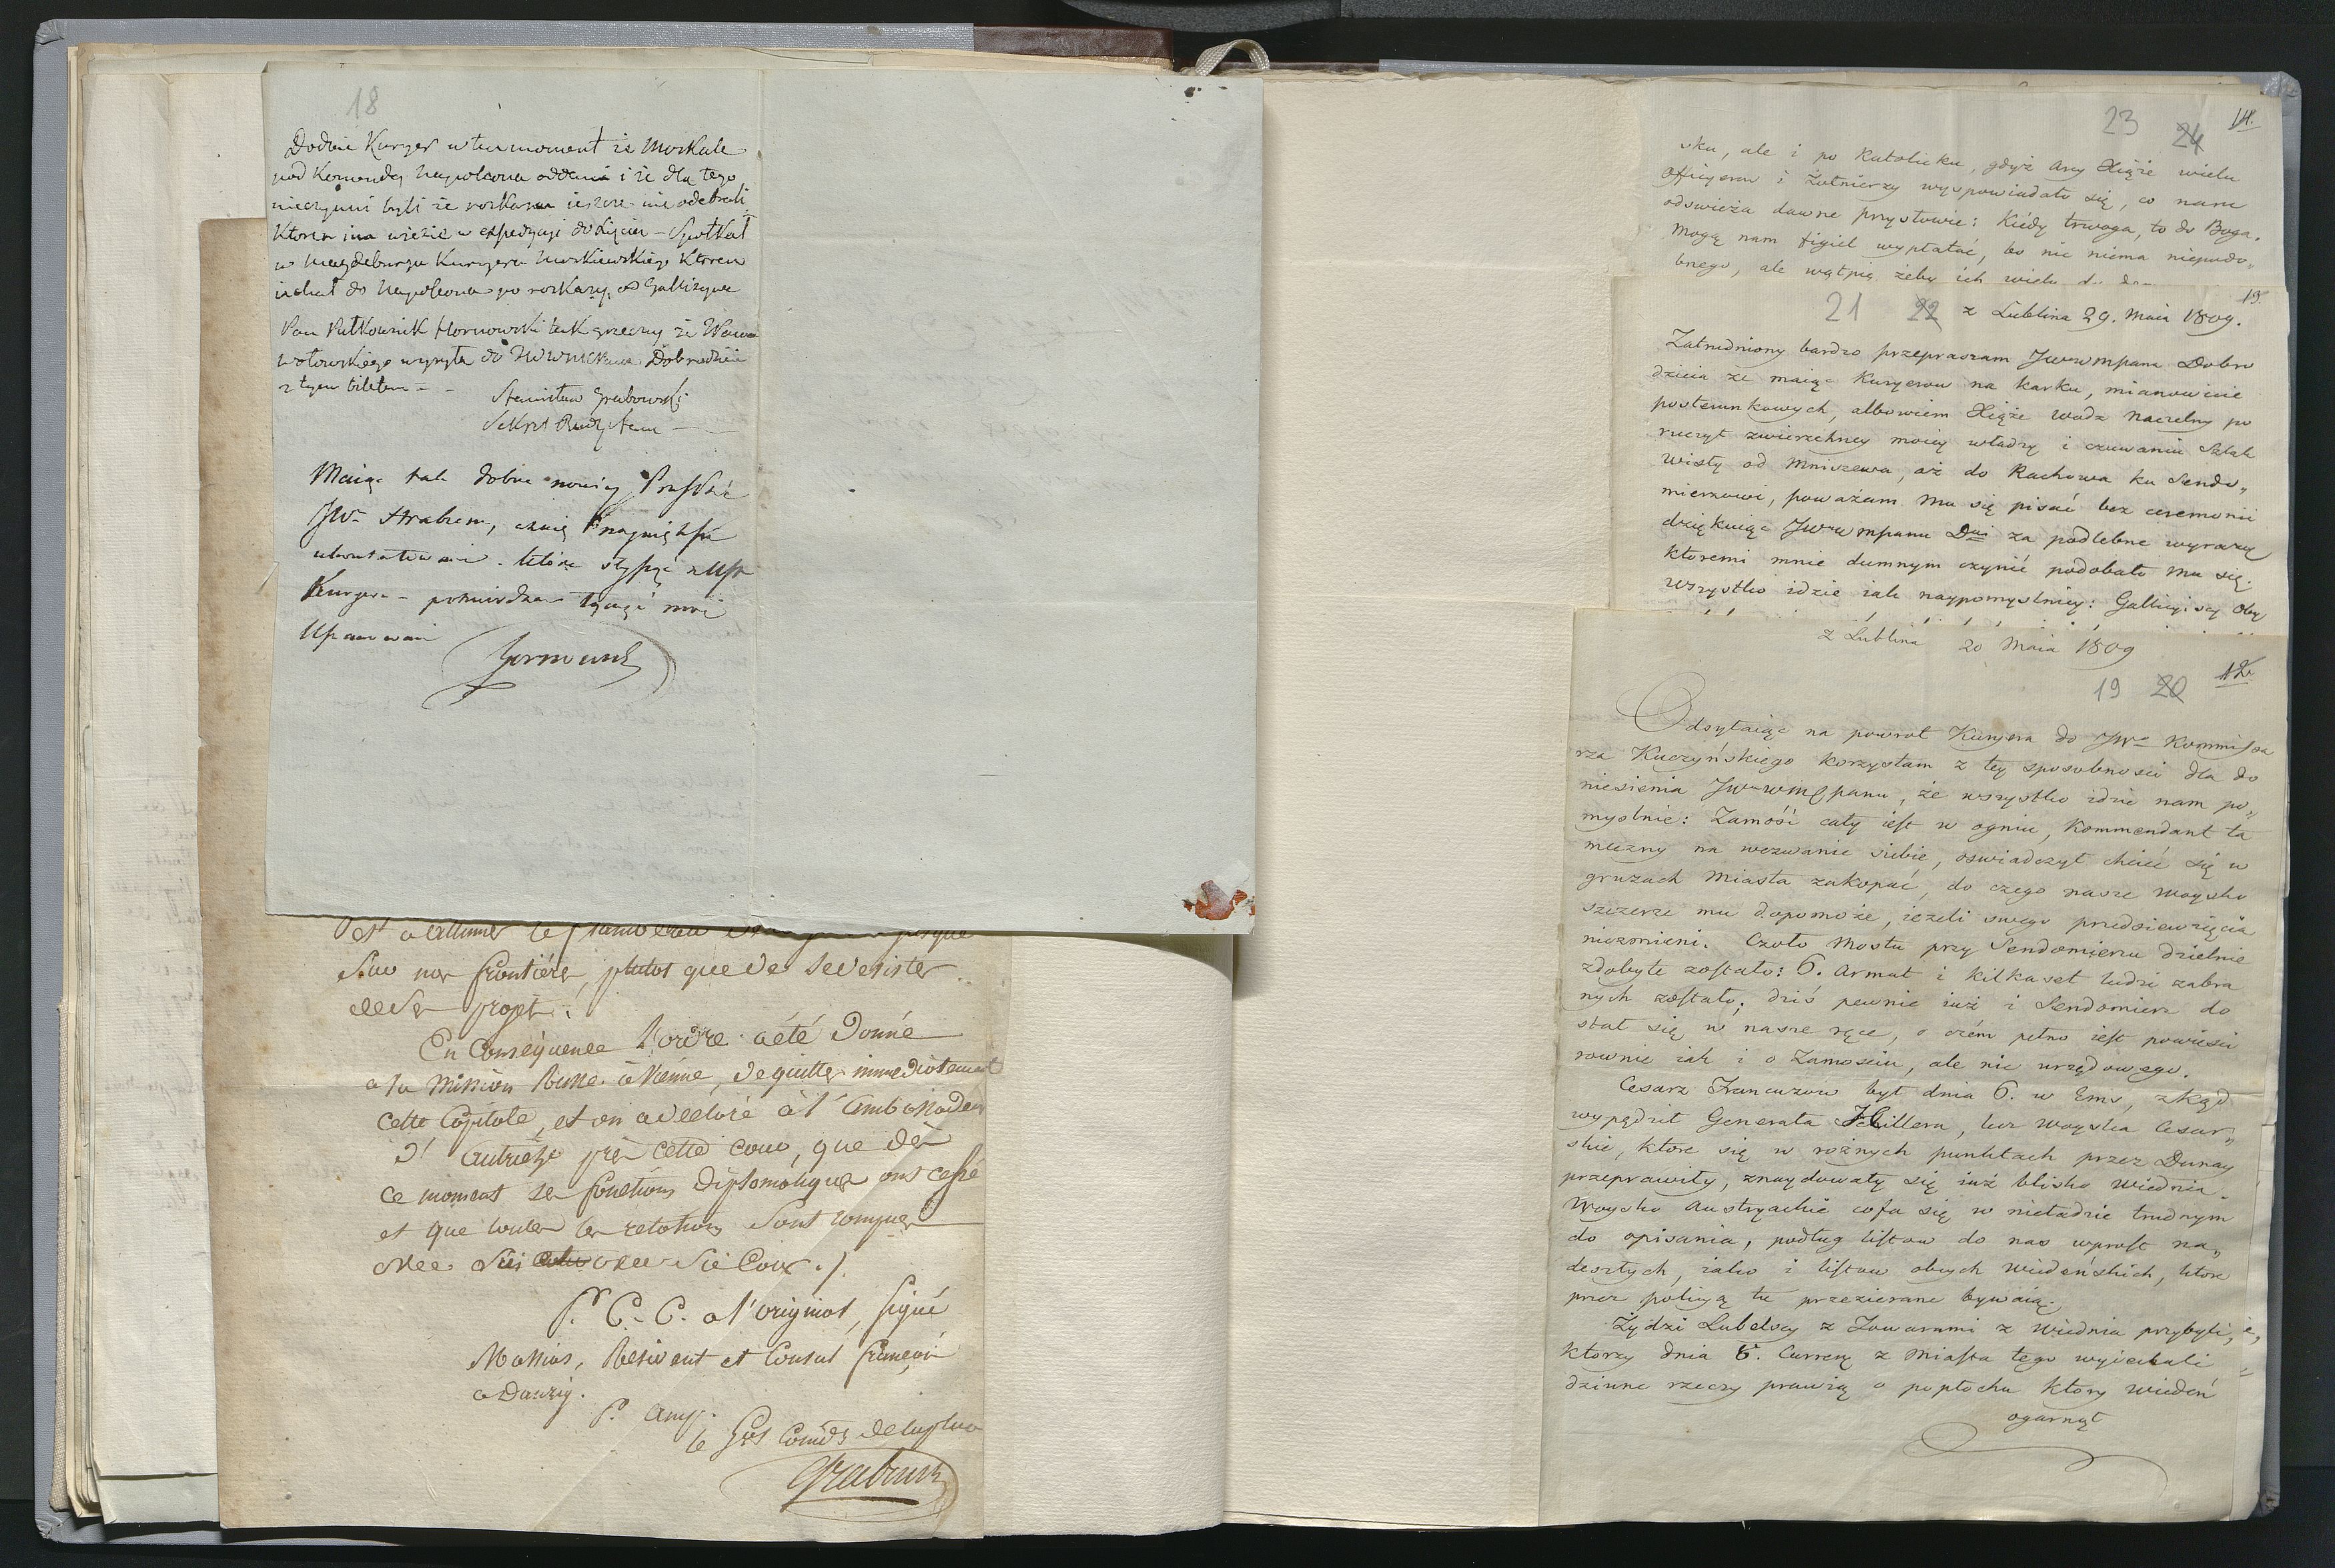 18
Dodaie Kuryer w ten moment iż Moskale
pod Komendę Napoleona oddani i że dla tego
nieczynni byli że rozkazu ieszcze nie odebrali
w Magdeburgu Kuryera Moskiewskiego Ktoren
iechał do Napoleona po rozkazy od Gallizyna
Pan Pułkownik Hornowski tak grzeczny że
z tym biletem
Stanisław Grabowski
Sekret Rady Stanu
Maiąc tak dobrą nowinę
JW Hrabiem,
Kuryera potwierdzam łącząc moie
Uszanowani
sur nos frontiéres, plutot que de se desister
de ses projets.
En Conséquence l'ordre a été Donné
a la Mission Russe à Vienne, de quitter immediatement
cette Capitale, et on a declaré à l'Ambassadeur
d'Autriche près cette cour, que dès
ce moment ses fonctions Diplomatiques ont cessé
et que toutes les relations sont rompues
P. C. C. a l'original, signé
Massias, Resident et Consul françois
a Danzig.
P. Amp.
le
Grabowski
23 24 14.
sku, ale i po Katolicku, gdyż Arcy Xiąże wielu
Officyerow i Żołnierzy wyspowiadało się, co nam
odswieża dawne przysłowie: Kiédy trwoga, to do Boga.
Mogą nam figiel wypłatać, bo nic niema niepodo„
bnego, ale wątpię żeby ich wielu do
13.
21 22 z Lublina 29. Maia 1809.
Zatrudniony bardzo przepraszam JWWMPana Dobro
dzieia że maiąc Kuryerow na karku, mianowicie
posterunkowych, albowiem Xiąże Wodz Naczelny po
ruczył zwierzchney moiey władzy i czuwaniu Szlak
Wisły od Mniszewa, aż do Rachowa ku Sendo„
mierzowi, poważam Mu się pisać bez ceremonii
dziękuiąc JWWMPanu Dni za podlebne wyrazy
ktoremi mnie dumnym czynić podobało Mu się.
Wszystko idzie iak naypomyslniey: Gallicyiscy Oby
z Lublina 20 Maia 1809
12.
19 20
Odsyłaiąc na powrot Kuryera do JWo Kommissa
rza Kuczyńskiego korzystam z tey sposobności dla do
niesienia JWWMPanu, że wszystko idzie nam po„
myslnie: Zamość cały iest w ogniu, Kommendant ta
meczny na wezwanie siebie, oswiadczył chcieć się w
gruzach Miasta zakopać, do czego nasze Woysko
szczerze mu dopomoże, ieżeli swego przedsiewzięcia
niezmieni. Czoło Mostu przy Sendomierzu dzielnie
zdobyte zostało: 6. Armat i kilkaset ludzi zabra
nych zostało; dziś pewnie iuż i Sendomierz do
stał się w nasze ręce, o czém pełno iest powieści
rownie iak i o Zamościu, ale nic urzędowego.
Cesarz Francuzow był dnia 6. w Ems, zkąd
wypędził Generała Hillera, lecz Woyska Cesar„
skie, ktore się w rożnych punktach przez Dunay
przeprawiły, znaydowały się iuż blisko Wiednia.
Woysko Austryackie cofa się w nieładzie trudnym
do opisania, podług listow do nas wprost na„
deszłych, iako i listow obcych Wiedeńskich, ktore
przez policyą tu przezierane bywaią.
Żydzi Lubelscy z Towarami z Wiednia przybyli,
ktorzy dnia 6. Curren z Miasta tego wyiechali
dziwne rzeczy prawią o popłochu ktory Wiedeń
ogarnął